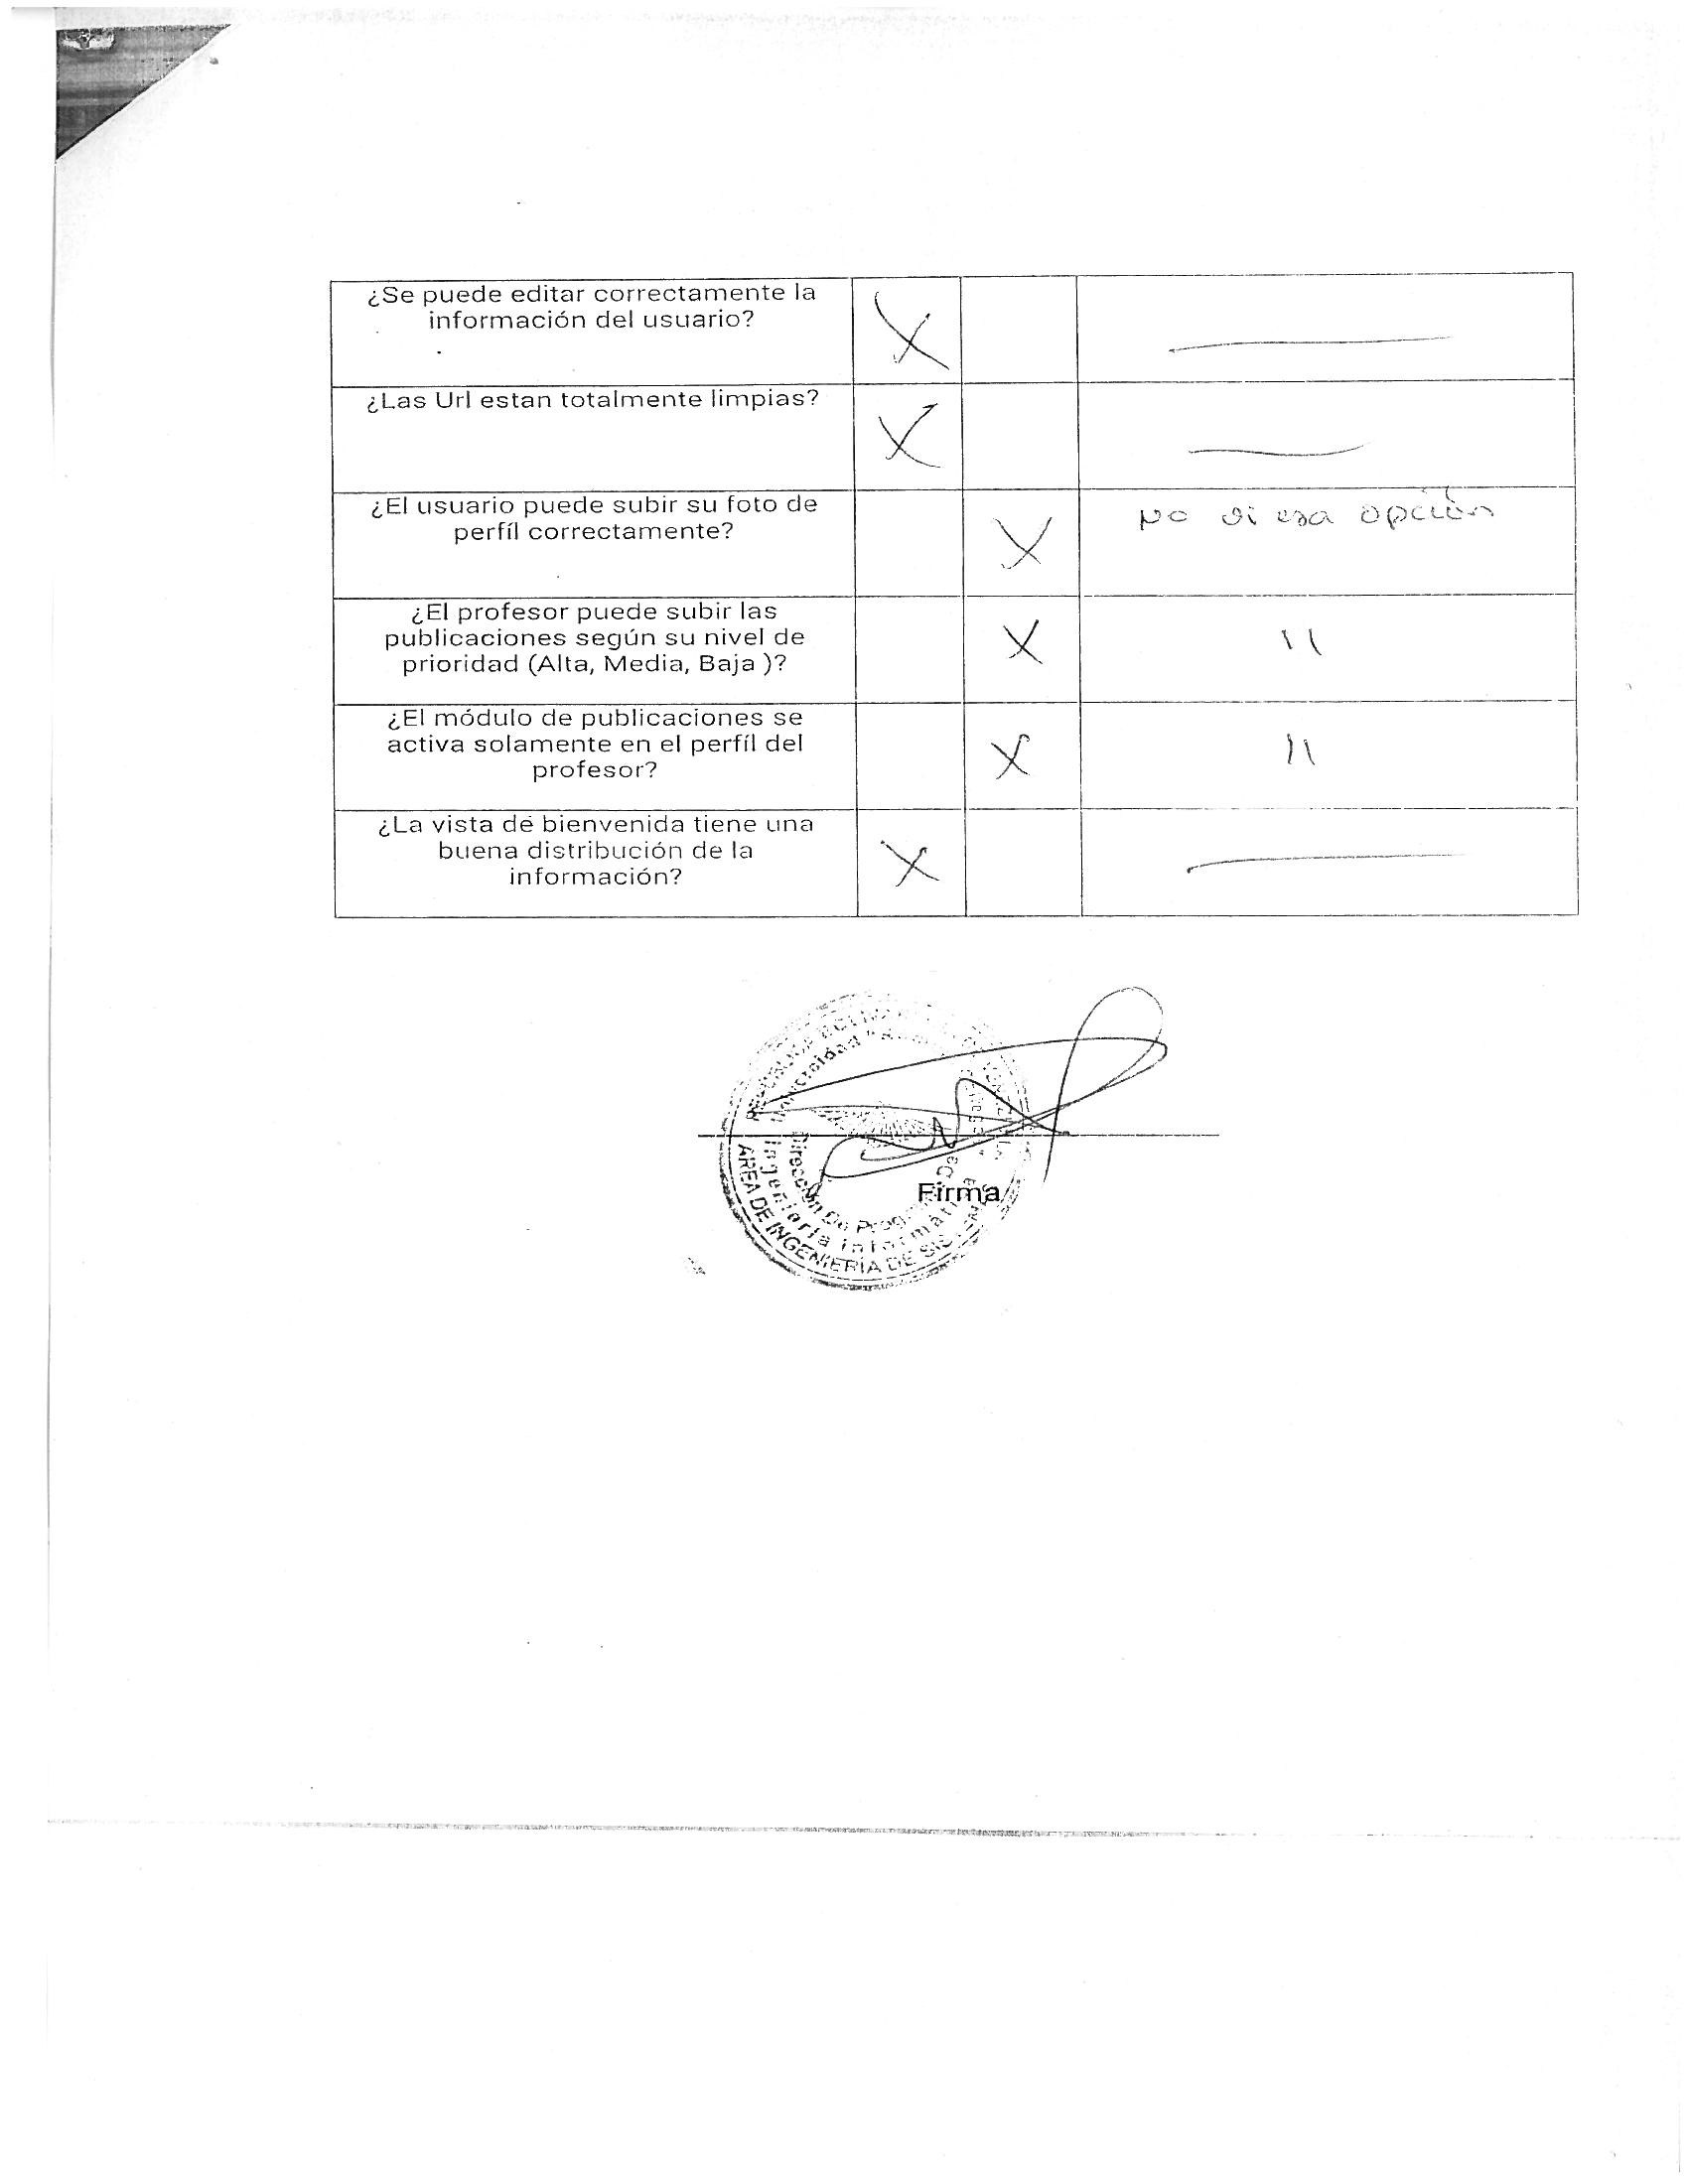 ¿Se puede editar correctamente la
información del usuario?
X
¿Las Url estan totalmente limpias?
X
¿El usuario puede subir su foto de
perfíl correctamente?
X
no vi esa opción
¿El profesor puede subir las
publicaciones según su nivel de
prioridad (Alta, Media, Baja )?
X
"
¿El módulo de publicaciones se
activa solamente en el perfíl del
profesor?
X
"
¿La vista de bienvenida tiene una
buena distribución de la
información?
X
Firma
Dirección De
Ingeniería Informática
AREA DE INGENIERIA DE